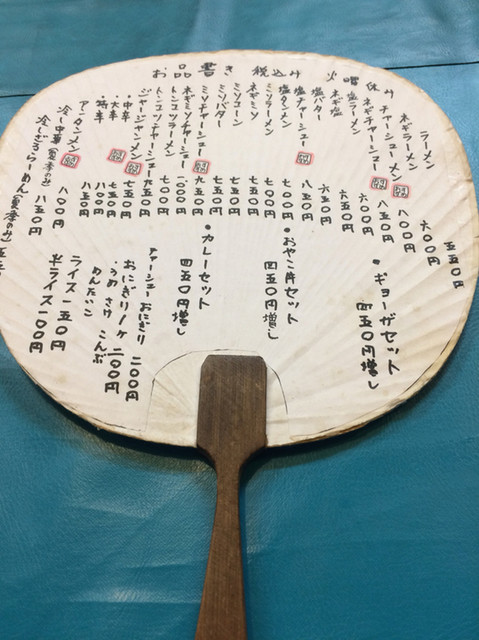 お品書き 税込み 火曜休み
ラーメン 五五〇円
ネギラーメン 六〇〇円
チャーシューメン 八〇〇円
ネギチャーシュー 八五〇円
塩ラーメン 六〇〇円
ネギ塩 六五〇円
塩バター 六五〇円
塩チャーシュー 八五〇円
塩タンメン 七〇〇円
ミソラーメン 七〇〇円
ネギミソ 七五〇円
ミソコーン 七五〇円
ミソバター 七五〇円
ミソチャーシュー 九五〇円
ネギミソチャーシュー 一〇〇〇円
トンコツラーメン 七〇〇円
トンコツチャーシュー 九五〇円
ジャージャンメン 七五〇円
・中辛 七五〇円
・大辛 八〇〇円
・特辛 八五〇円
アンタンメン 八〇〇円
冷し中華(夏季のみ) 八五〇円
冷しざるらーめん(夏季のみ)
・ギョーザセット
四五〇円増し
・おやこ丼セット
四五〇円増し
・カレーセット
四五〇円増し
チャーシューおにぎり 二〇〇円
おにぎり1ヶ 二〇〇円
・うめ さけ こんぶ
めんたいこ
ライス 一五〇円
半ライス 一〇〇円